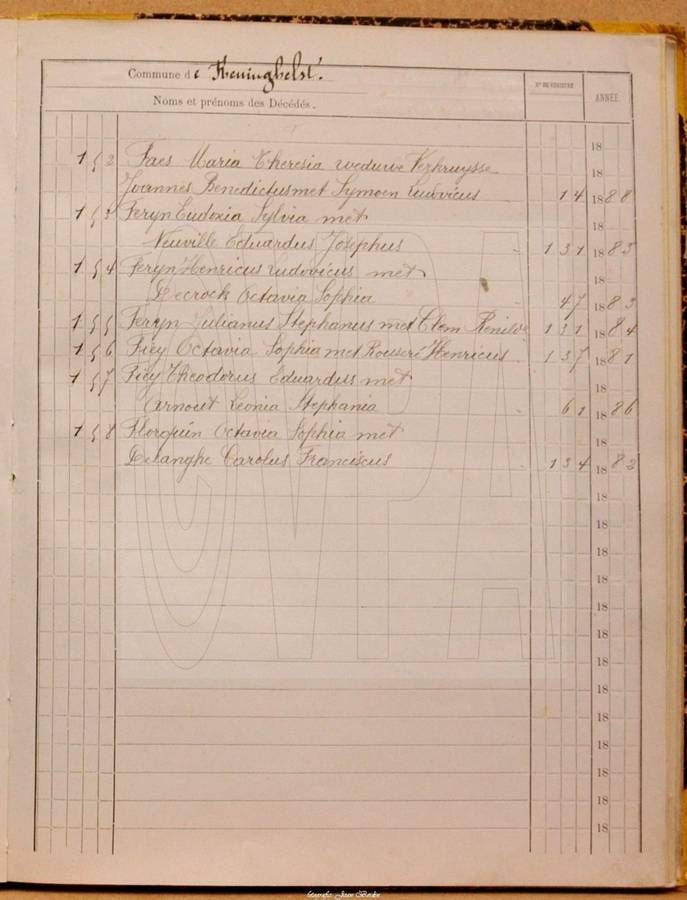 Commune de Reninghelst.
Noms et prénoms des Décédés.
N° DU REGISTRE
ANNÉE.
18
152 Faes Maria Theresia weduwe Verkruysse
Joannes Benedictus met Symoen Ludovicus 14 1888
153 Feryn Eudoxia Sylvia met 18
Neuville Eduardus Josephus 131 1883
154 Feryn Henricus Ludovicus met 18
Decrock Octavia Sophia 47 1883
155 Feryn Julianus Stephanus met Clem Renilde 131 1884
156 Fiey Octavia Sophia met Rouseré Henricus 137 1881
157 Fiey Theodorus Eduardus met 18
Arnout Leonia Stephania 61 1886
158 Florquin Octavia Sophia met 18
Delanghe Carolus Franciscus 134 1882
18
18
18
18
18
18
18
18
18
18
18
18
18
CVFA